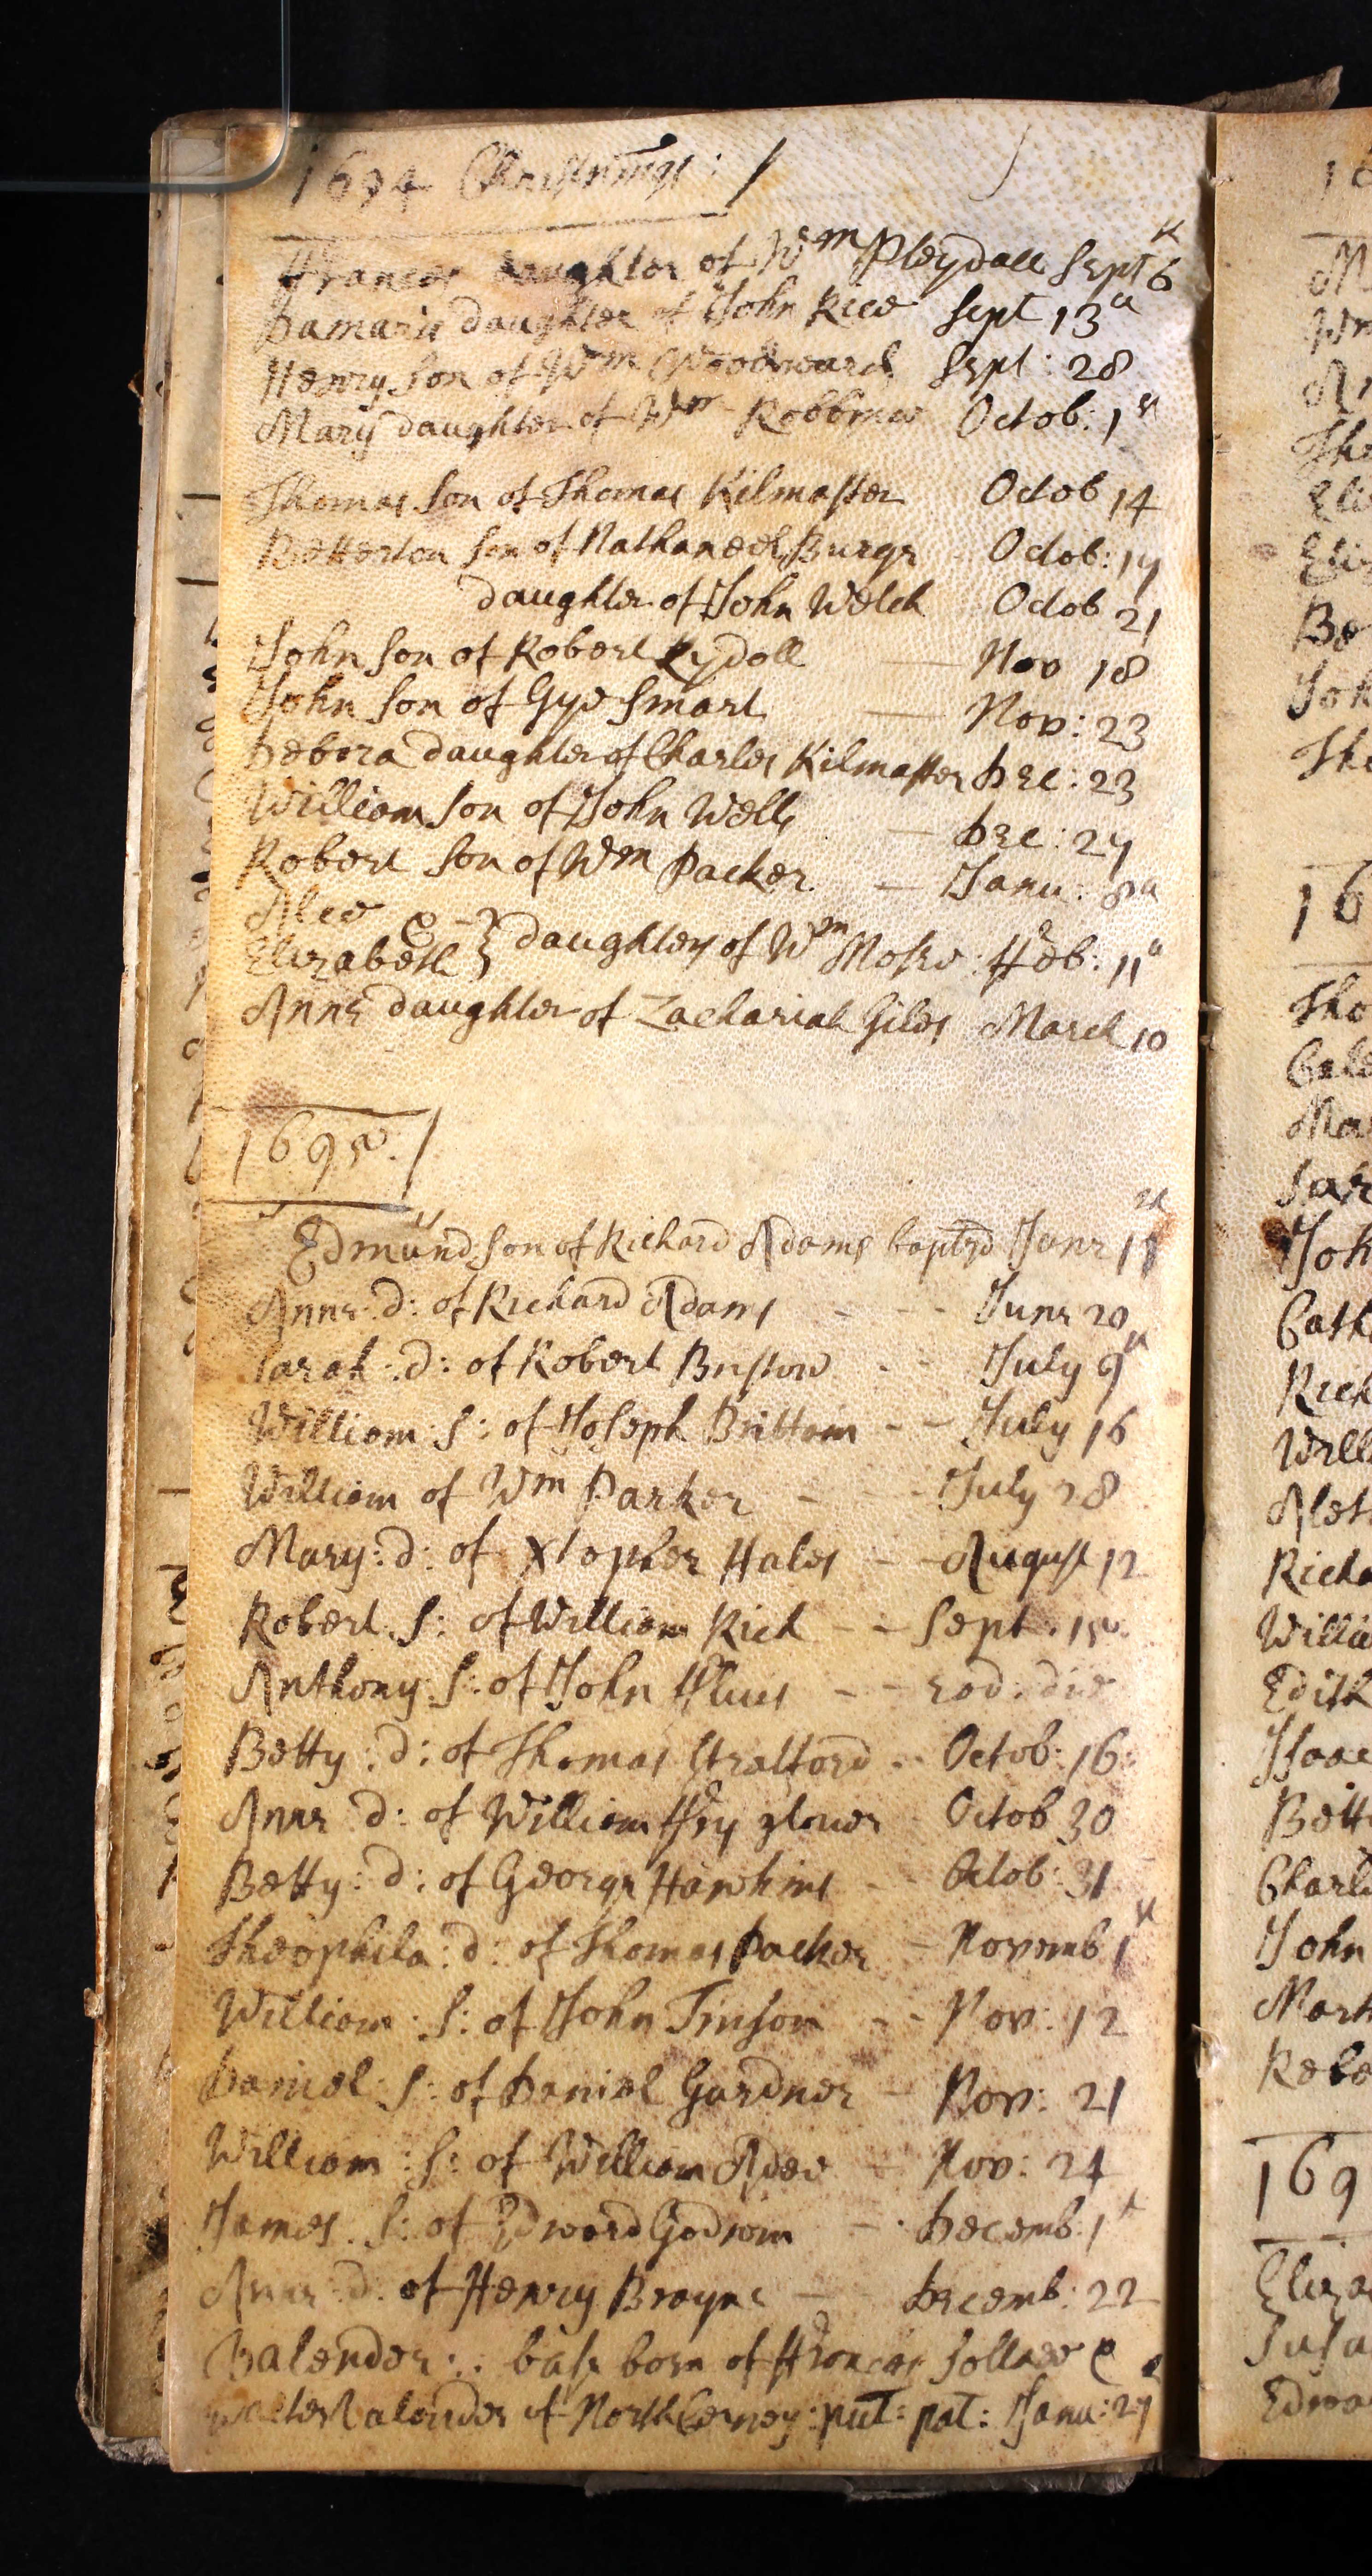 1694 Christnings:
Frances daughter of Wm Pleydall Sept 6
Damaris daughter of John Rice Sept 13
Henry son of Wm Woodward Sept: 28
Mary daughter of Wm Robbines Octob: 1st
Thomas son of Thomas Kilmaster Octob 14
Betterton son of Nathaneel Burge Octob: 17
daughter of John Welch Octob 21
John son of Robert Rydoll Nov 18
John son of Gye Smart Nov: 23
Debora daughter of Charles Kilmaster Dec: 23
William son of John Wells Dec: 27
Robert son of Wm Packer Janu: 8
Alce &
Elizabeth } daughters of Wm Mosse Feb: 11
Anne daughter of Zachariah Giles March 10
1695.
Edmund son of Richard Adams bapt'zd June 11
Anne: d: of Richard Adams - - - June 20
Sarah: d: of Robert Bristow - - July 9
William: S: of Joseph Brittain - - July 16
William of Wm Parker - - - July 28
Mary: d: of Xtopher Hales - - August 12
Robert. S: of William Rich - - Sept. 15.
Anthony: S: of John - - eod: die
Betty: d: of Thomas Stratford - - Octob: 16:
Anne: d: of William Fry glover - Octob 30
Betty: d: of George Hawkins - - Octob: 31
Theophila: d: of Thomas Packer - Novemb 1st
William: S: of John Tinson - - Nov: 12
Daniel: S: of Daniel Gardner - Nov: 21
William: S: of William Adee - Nov: 24
James: S: of Edward Godwin - Decemb: 1st
Anne: d: of Henry Brayne - Decemb: 22
Balender: base born of Frances &
of North Cerney: put: pat: Janu: 27
16
16
169